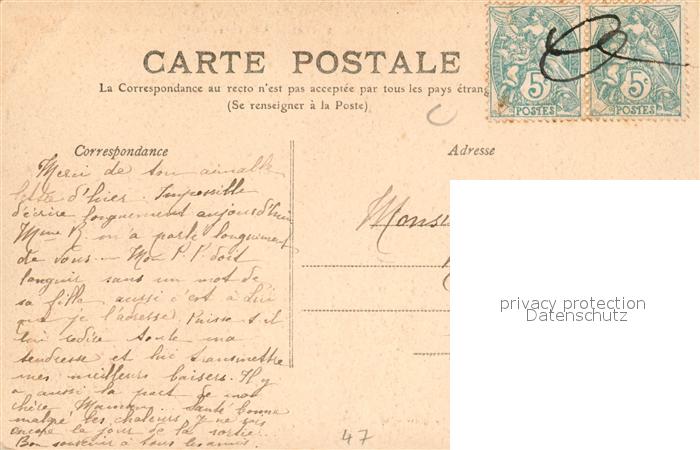 CARTE POSTALE
La Correspondance au recto n'est pas acceptée par tous les pays étrang
(Se renseigner à la Poste)
5c 5c
POSTES POSTES
Correspondance
Adresse
Merci de ton aimable
lettre d'hier. Impossible
d'écrire longuement aujourd'hui
Mme R. m'a parlé longuement
de vous — P. P. doit
languir sans un mot de
sa fille aussi c'est à lui
que je l'adresse. Puisse-t-il
lui redire toute ma
tendresse et lui transmettre
mes meilleurs baisers. Il y
a aussi la part de ma
chère Maman. Santé bonne
malgré les chaleurs. J ne sais
encore le jour de la sortie.
Bon souvenir à tous les amis.
Monsi
privacy protection
Datenschutz
47